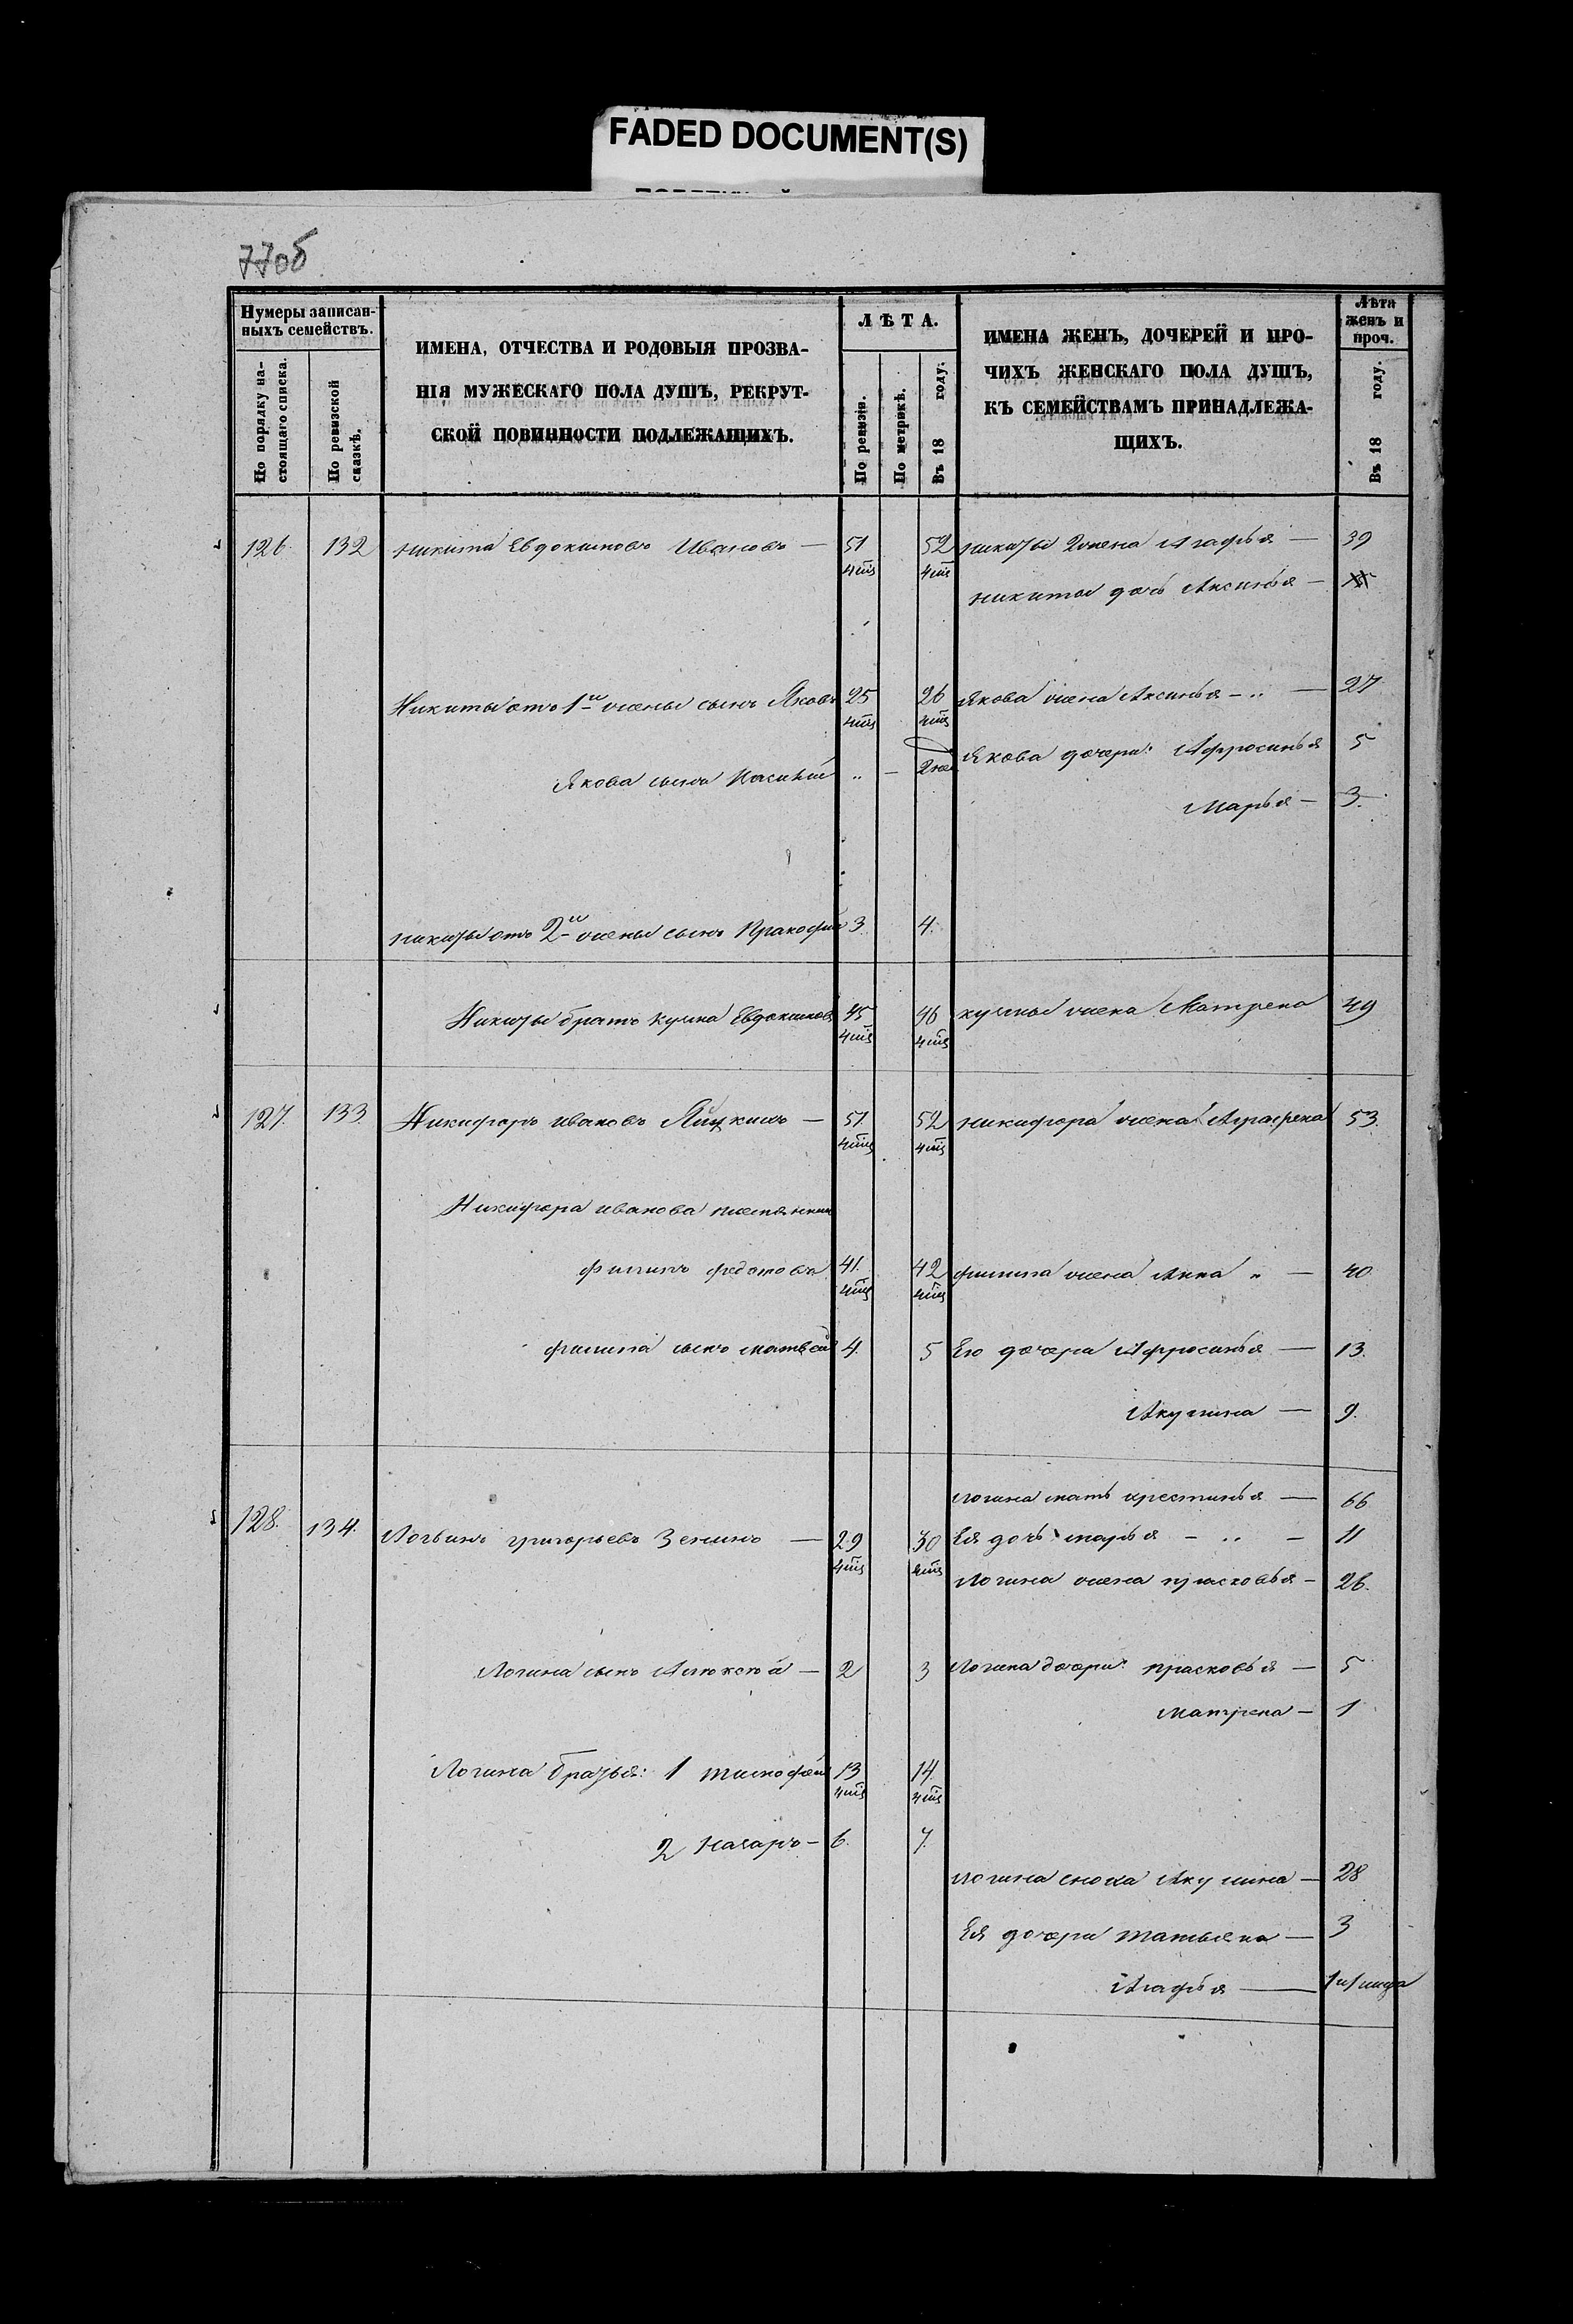 FADED DOCUMENT(S)
77об
Нумеры записан-
ныхъ семействъ.
По порядку на-
стоящаго списка.
По ревизской
сказкѣ.
ИМЕНА, ОТЧЕСТВА И РОДОВЫЯ ПРОЗВА-
НІЯ МУЖЕСКАГО ПОЛА ДУШЪ, РЕКРУТ-
СКОЙ ПОВИННОСТИ ПОДЛЕЖАЩИХЪ.
ЛѢТА.
По ревизіи.
По метрикѣ.
Въ 18 году.
ИМЕНА ЖЕНЪ, ДОЧЕРЕЙ И ПРО-
ЧИХЪ ЖЕНСКАГО ПОЛА ДУШЪ,
КЪ СЕМЕЙСТВАМЪ ПРИНАДЛЕЖА-
ЩИХЪ.
Лѣта
женъ и
проч.
Въ 18 году.
126. 132 никита Евдокимовъ Ивановъ — 51 52 никиты 2 жена Агафья — 39
никиты дочь Аксинья —
Никиты отъ 1й жены сынъ Яковъ 25 26 Якова жена Аксинья — 27
Якова дочери: Афросинья 5
Якова сынъ
Марья — 3.
никиты отъ 2й жены сынъ Пракофий 3 4.
Никиты братъ Кузма Евдокимовъ 45 46 кузмы жена Матрена 49
127. 133. Никифоръ ивановъ — 51. 52 никифора жена Аграфена 53.
Никифора иванова
филипъ федотовъ 41. 42 филипа жена Анна — 40
филипа сынъ матвей 4. 5 Его дочери Афросинья — 13.
Акулина — 9.
логина мать крестинья — 66
128. 134. Логвинъ григорьевъ Зенинъ — 29 30 Ея дочь марья — 11
Логина жена прасковья — 26.
Логина сынъ Алексей — 2 3 Логина дочери: прасковья — 5
матрена — 1
Логина братья: 1 тимофей 13 14.
2 назаръ — 6. 7.
логина сноха Акулина — 28
Ея дочери татьяна — 3
Агафья —